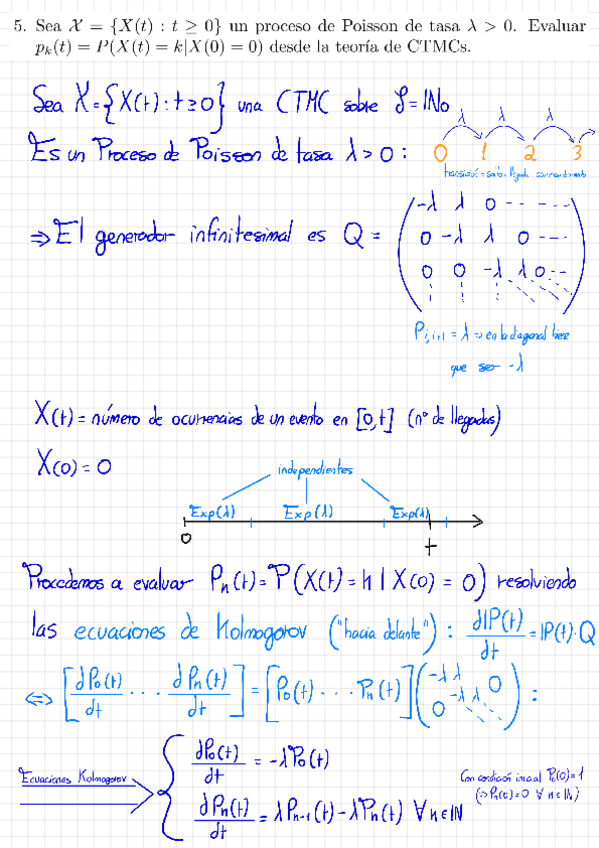 5. Sea 𝒳 = {X(t) : t ≥ 0} un proceso de Poisson de tasa λ > 0. Evaluar
p_k(t) = P(X(t) = k|X(0) = 0) desde la teoría de CTMCs.
Sea X = {X(t) : t ≥ 0} una CTMC sobre S = ℕ₀
λ λ λ
Es un Proceso de Poisson de tasa λ > 0 : 0 1 2 3
⇒ El generador infinitesimal es Q =
-λ λ 0 - - - - - -
0 -λ λ 0 - - -
0 0 -λ λ 0 - -
P_{i,i+1} = λ ⇒ en la diagonal tiene
que ser -λ
X(t) = número de ocurrencias de un evento en [0,t] (nº de llegadas)
X(0) = 0
independientes
Exp(λ) Exp(λ) Exp(λ)
0 t
Procedemos a evaluar P_n(t) = P(X(t) = n | X(0) = 0) resolviendo
las ecuaciones de Kolmogorov ("hacia delante") : dℙ(t)/dt = ℙ(t)·Q
⇔ [dP₀(t)/dt ... dP_n(t)/dt] = [P₀(t) ... P_n(t)] (-λ λ 0
-λ λ
0 ) :
dP₀(t)/dt = -λP₀(t)
Ecuaciones Kolmogorov
Con condición inicial P₀(0)=1
(⇒ P_n(0)=0 ∀ n ∈ ℕ)
dP_n(t)/dt = λP_{n-1}(t) - λP_n(t) ∀ n ∈ ℕ